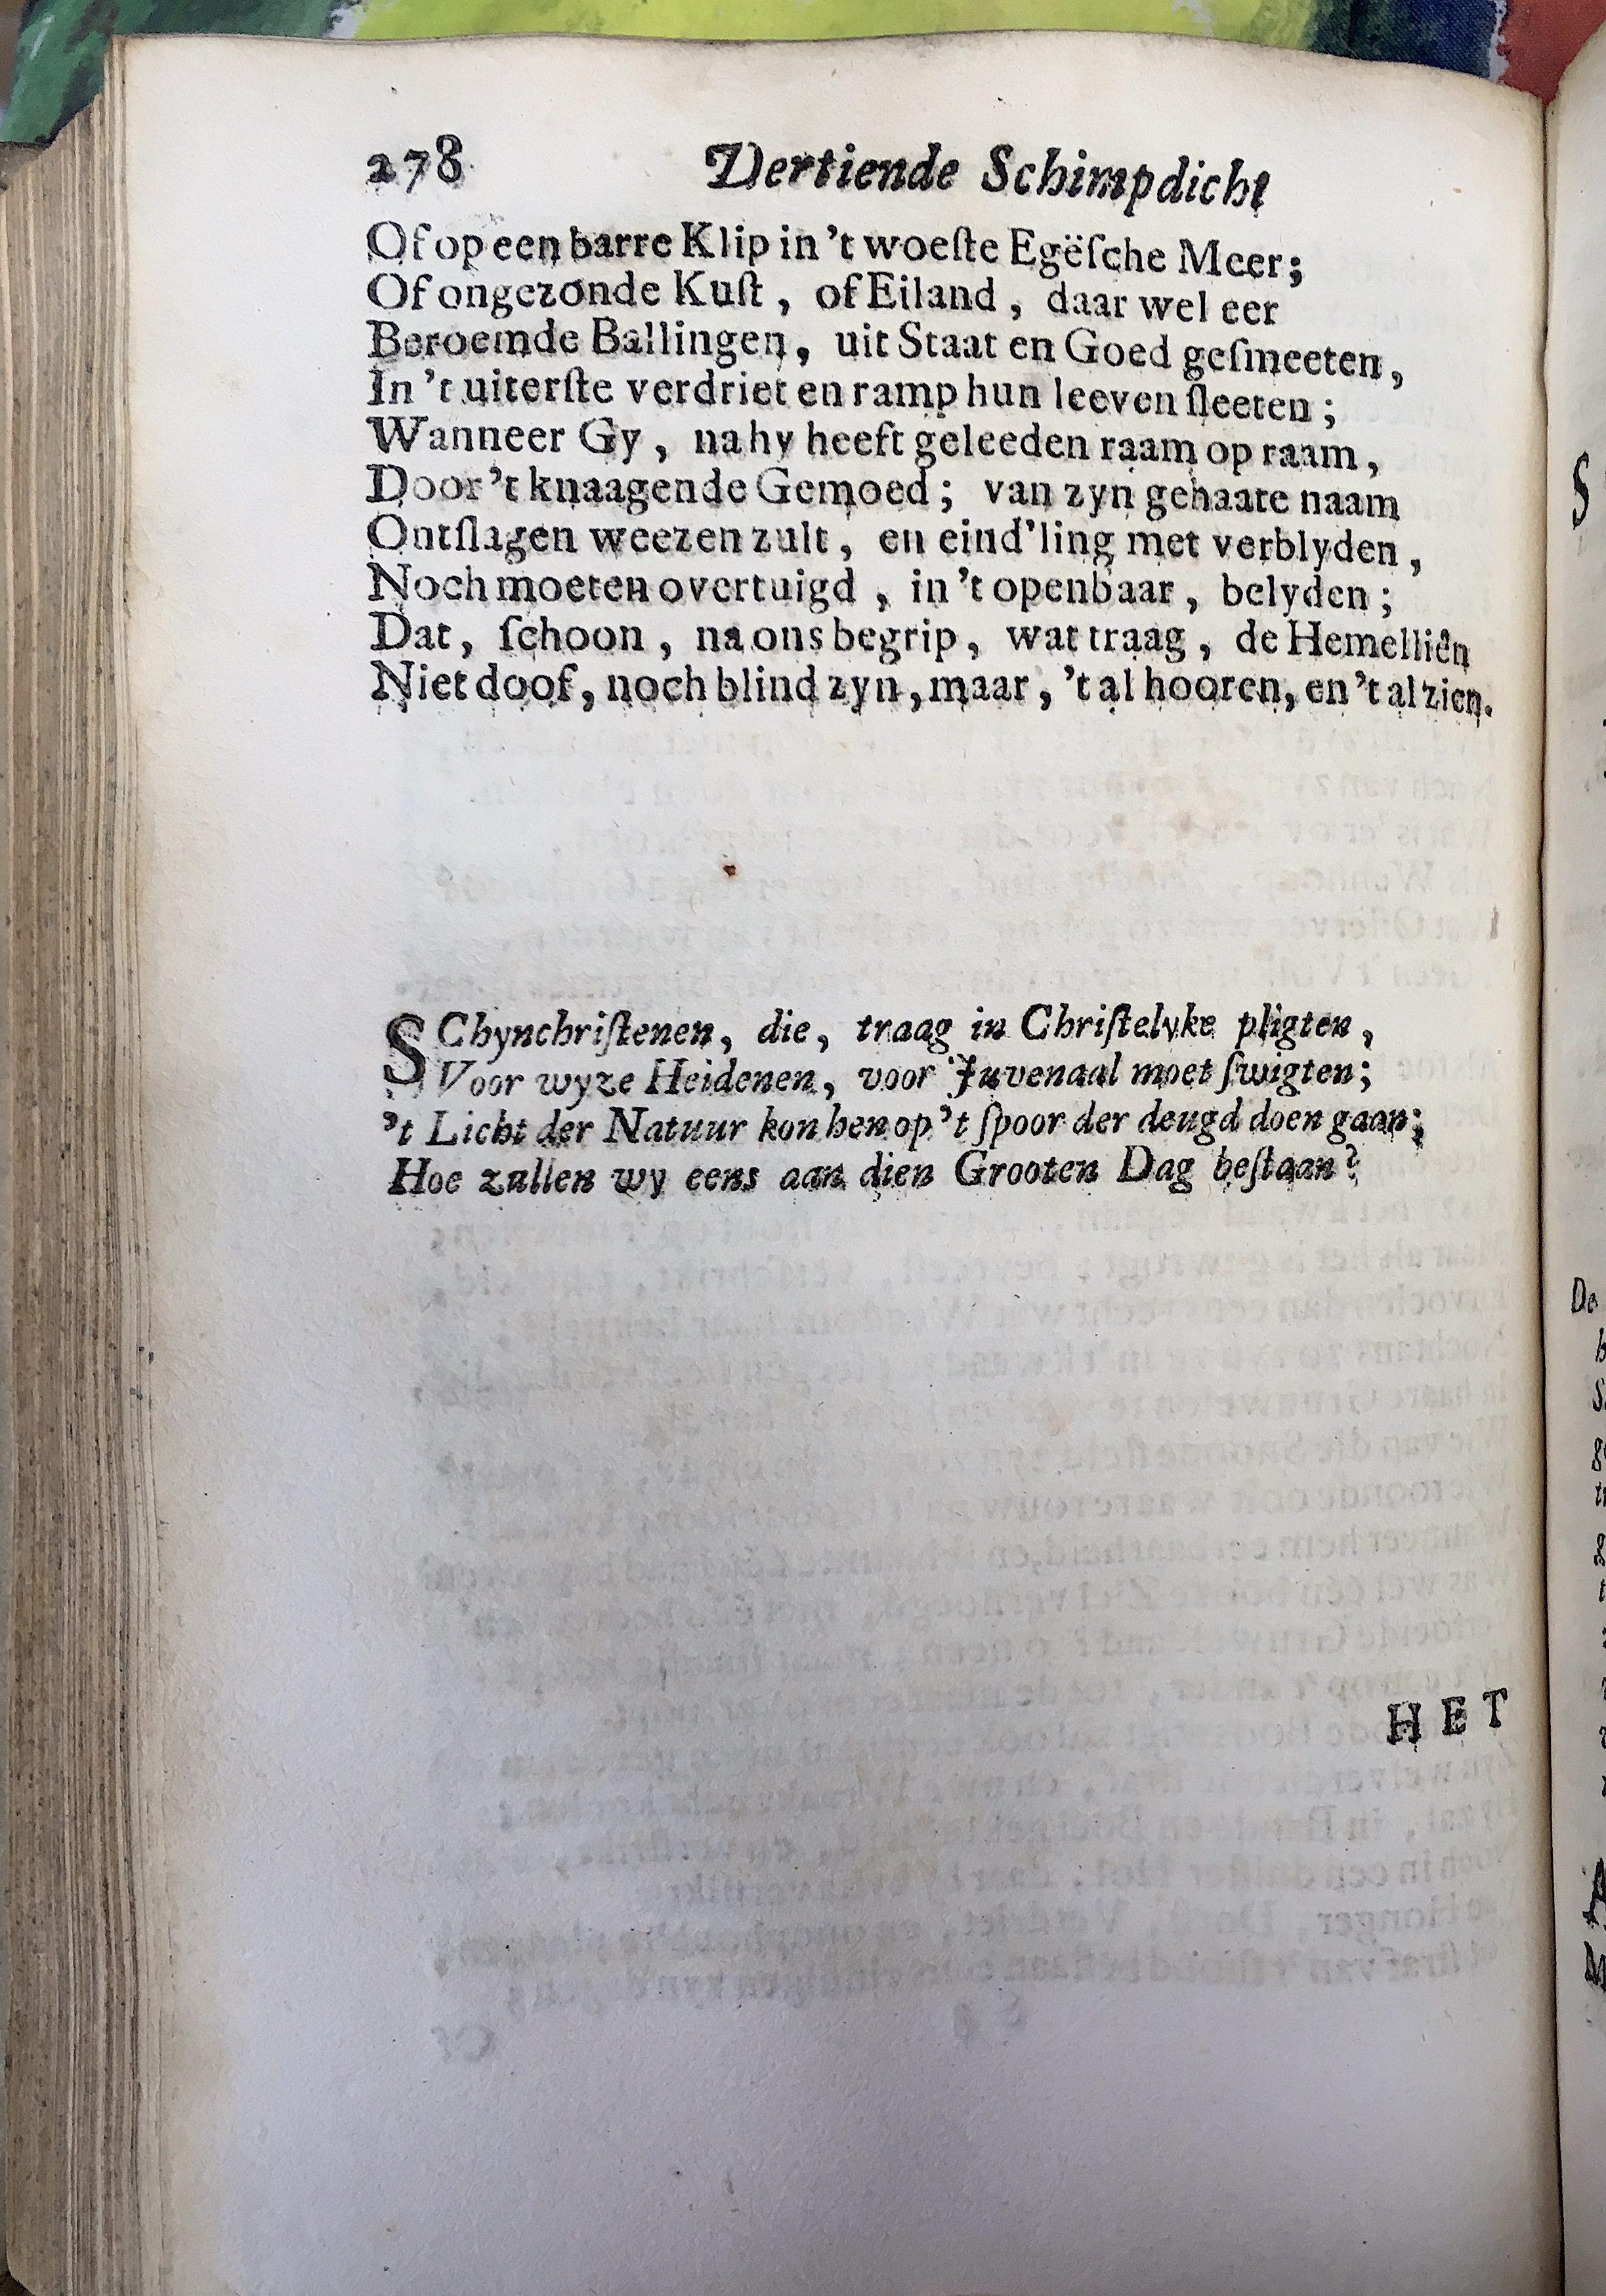 278 Dertiende Schimpdicht
Of op een barre Klip in 't woeſte Egëſche Meer;
Of ongezonde Kuſt, of Eiland, daar wel eer
Beroemde Ballingen, uit Staat en Goed geſmeeten,
In 't uiterſte verdriet en ramp hun leeven ſleeten;
Wanneer Gy, na hy heeft geleeden raam op raam,
Door 't knaagende Gemoed; van zyn gehaate naam
Ontſlagen weezen zult, en eind'ling met verblyden,
Noch moeten overtuigd, in 't openbaar, belyden;
Dat, ſchoon, na ons begrip, wat traag, de Hemelliên
Niet doof, noch blind zyn, maar, 't al hooren, en 't al zien.
SChynchriſtenen, die, traag in Chriſtelyke pligten,
Voor wyze Heidenen, voor Juvenaal moet ſwigten;
't Licht der Natuur kon hen op 't ſpoor der deugd doen gaan;
Hoe zullen wy eens aan dien Grooten Dag beſtaan?
HET